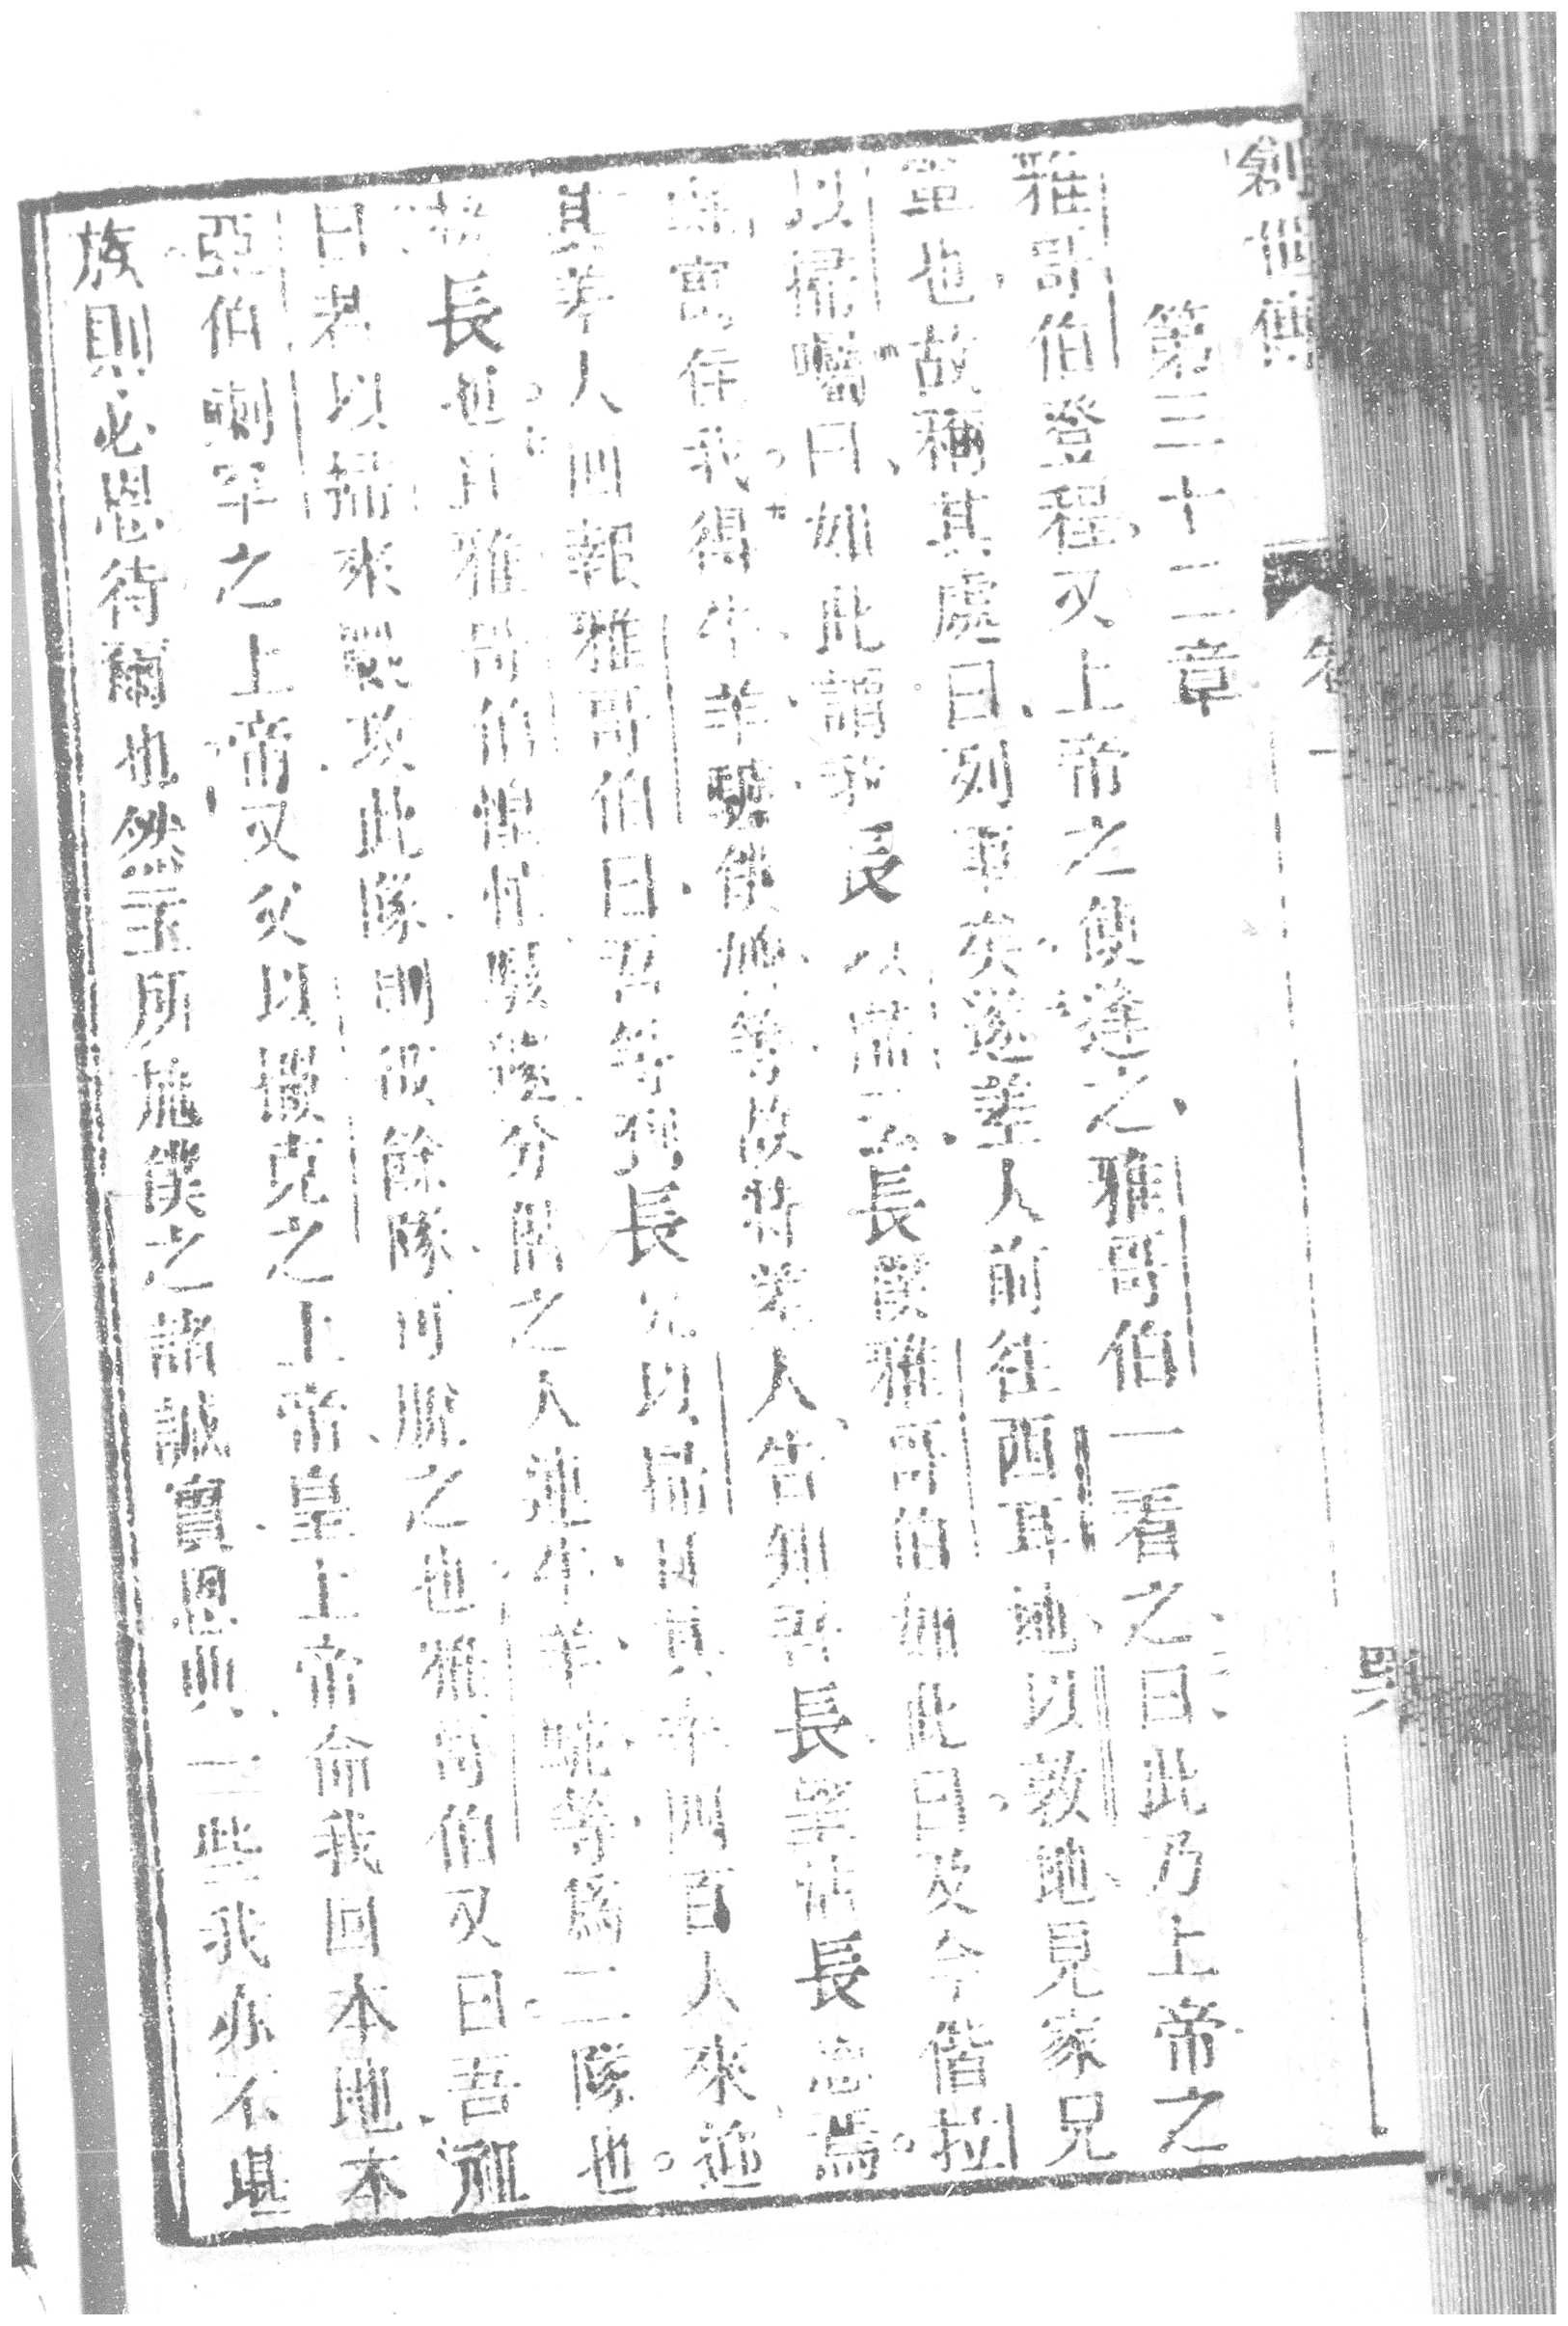 創世傳
卷一
第三十二章
雅哥伯登程又上帝之使逢之雅哥伯一看之曰此乃上帝之
軍也故稱其處曰列軍矣遂差人前往西耳地以教地見家兄
以掃囑曰如此謂吾長以掃云長僕雅哥伯如此曰及今偕拉
寓住我得牛羊驢僕婢等故特差人告知吾長望沾長恩焉
其差人回報雅哥伯曰吾等到長兄以掃且其率四百人來迎
長也且雅哥伯惶忙緊後分偕之人連牛羊駝等為二隊也
曰若以掃來戰攻此隊則彼餘隊可脫之也雅哥伯又曰吾祖
亞伯喇罕之上帝又父以撒克之上帝皇上帝命我回本地本
族則必恩待爾也然主所施僕之諸誠實恩典一些我亦不堪